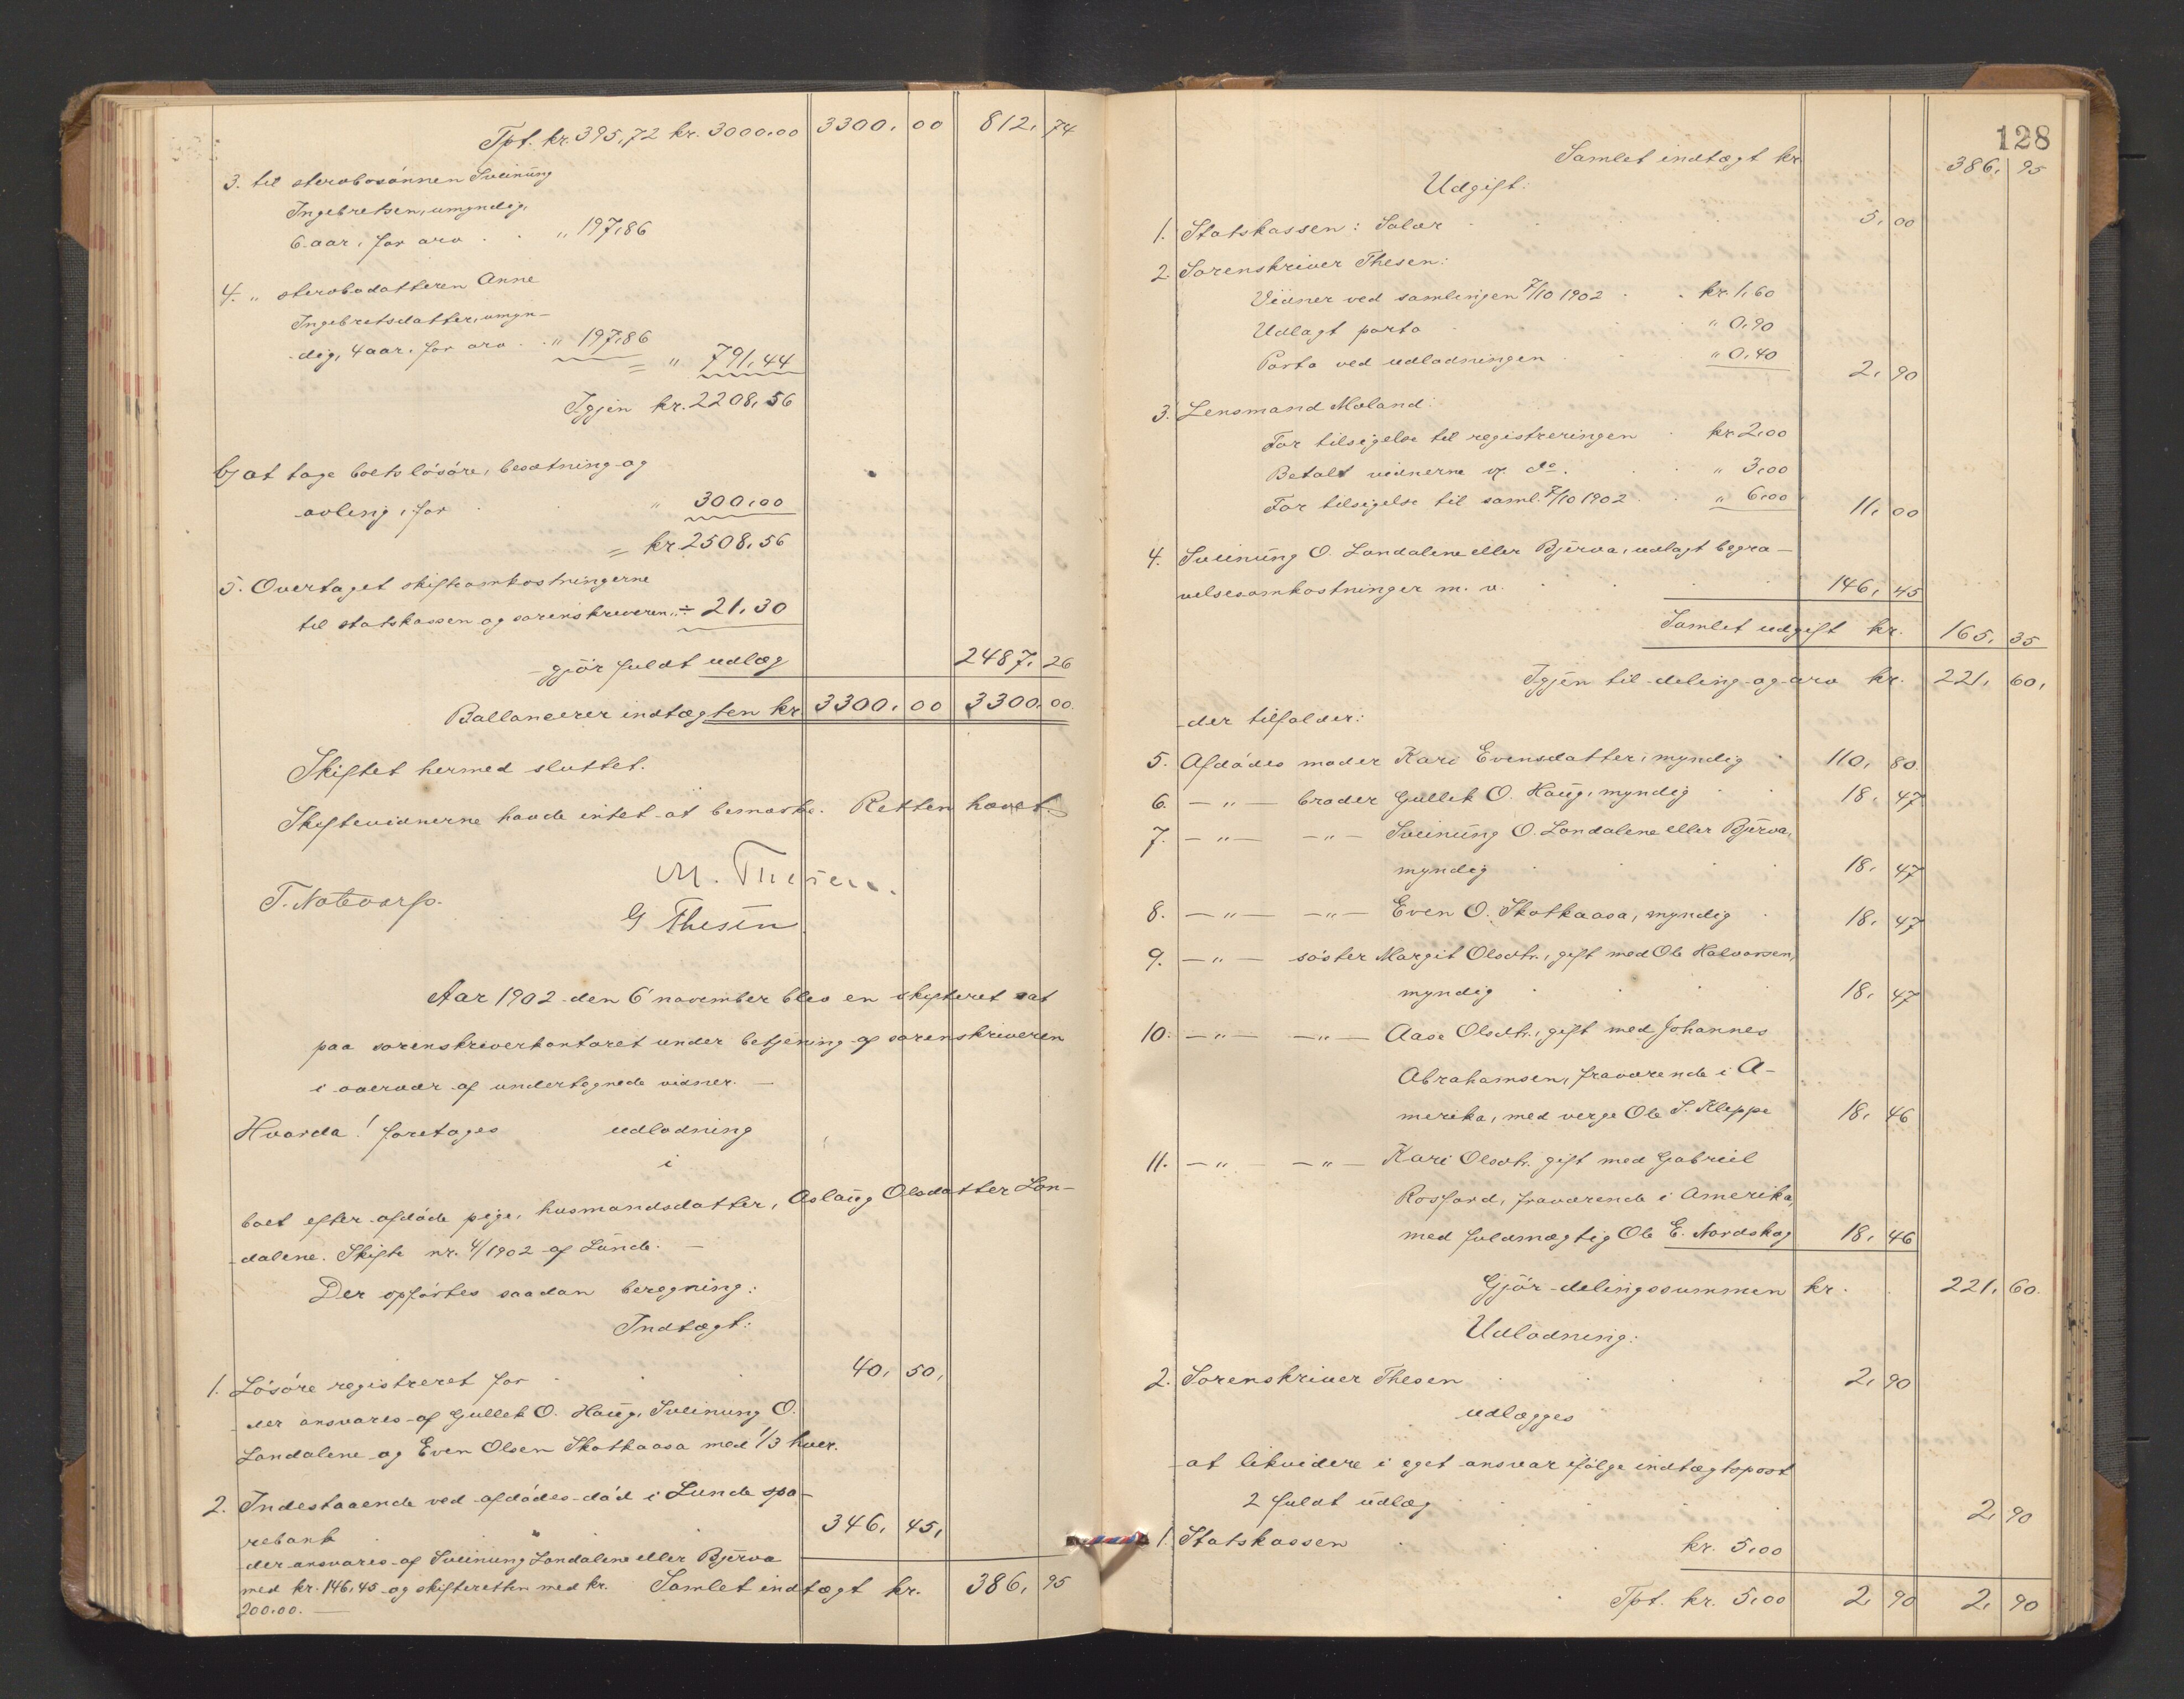 Tpt. kr. 395,72 kr. 3000.00 3300, 00 812, 74
3. til stervbosönnen Sveinung
Ingebretsen, umyndig,
6 aar, for arv . . " 197,86
4. " stervbodatteren Anne
Ingebretsdatter, umyn-
dig, 4 aar, for arv . " 197,86
= " 791,44
Igjen kr. 2208,56
b) at tage boets lösöre, besætning og
avling, for " 300,00
= kr. 2508,56
5. Overtaget skifteomkostningerne
til statskassen og sorenskriveren " ÷ 21,30
gjör fuldt udlæg 2487, 26
Ballancerer indtægten kr. 3300, 00 3300, 00.
Skiftet hermed sluttet.
Skiftevidnerne havde intet at bemærke. Retten hævet.
M. Thesen.
T. Notevarp. G Thesen
Aar 1902 den 6 november blev en skifteret sat
paa sorenskriverkontoret under betjening af sorenskriveren
i overvær af undertegnede vidner. —
Hvorda! foretoges udlodning
i
boet efter afdöde pige, husmandsdatter, Aslaug Olsdatter Lon-
dalene. Skifte nr. 4/1902 af Lunde. —
Der opförtes saadan beregning:
Indtægt:
1. Lösöre registreret for 40, 50,
der ansvares af Gullek O. Haug, Sveinung O.
Londalene og Even Olsen Skotkaasa med 1/3 hver.
2. Indestaaende ved afdödes död i Lunde spa-
rebank " 346, 45,
der ansvares af Sveinung Londalene eller Bjerva
med kr. 146,45 og skifteretten med kr. Samlet indtægt kr. 386, 95
200.00. —
128
Samlet indtægt kr. 386, 95
Udgift:
1. Statskassen: Salær 5, 00
2. Sorenskriver Thesen:
Vidner ved samlingen 7/10 1902 . . kr. 1,60
Udlagt porto " 0,90
Porto ved udlodningen " 0,40 2, 90
3. Lensmand Moland:
For tilsigelse til registreringen . kr. 2,00
Betalt vidnerne v. do. " 3,00
For tilsigelse til saml. 7/10 1902 . . " 6,00 11, 00
4. Sveinung O. Londalene eller Bjerva, udlagt begra-
velsesomkostninger m. v. 146, 45
Samlet udgift kr. 165, 35
Igjen til deling og arv kr. 221, 60,
der tilfalder:
5. Afdödes moder Kari Evensdatter, myndig 110, 80
6. — " — broder Gullek O. Haug, myndig 18, 47
7. — " — — " — Sveinung O. Londalene eller Bjerva,
myndig 18, 47
8. — " — — " — Even O. Skotkaasa, myndig 18, 47
9. — " — söster Margit Olsdtr., gift med Ole Halvorsen,
myndig 18, 47
10. — " — — " — Aase Olsdtr., gift med Johannes
Abrahamsen, fraværende i A-
merika, med verge Ole S. Kleppe 18, 46
11. — " — — " — Kari Olsdtr. gift med Gabriel
Rosford, fraværende i Amerika,
med fuldmægtig Ole E. Nordskog 18, 46
Gjör delingssummen kr. 221, 60.
Udlodning:
2. Sorenskriver Thesen 2, 90
udlægges
at likvidere i eget ansvar ifölge indtægtspost
2 fuldt udlæg 2, 90
1. Statskassen kr. 5,00
Tpt. kr. 5,00 2, 90 2, 90